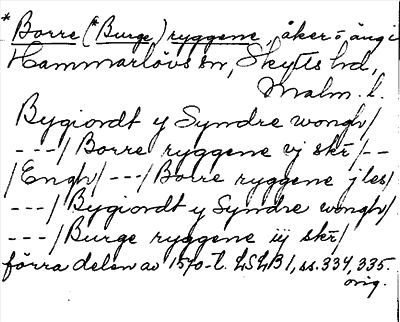 *Borre (*Burge) ryggene, åker o äng i
Hammarlövs sn, Skytts hd,
Malm. l.
Bygiordt y Syndre wongh/
---/Borre ryggene vj skr/--
/Engh/---/Borre ryggene j les/
---/Bygiordt y Syndre wongh/
---/Burge ryggene iij skr/
förra delen av 1570-t. LSLB1, ss. 334, 335.
orig.